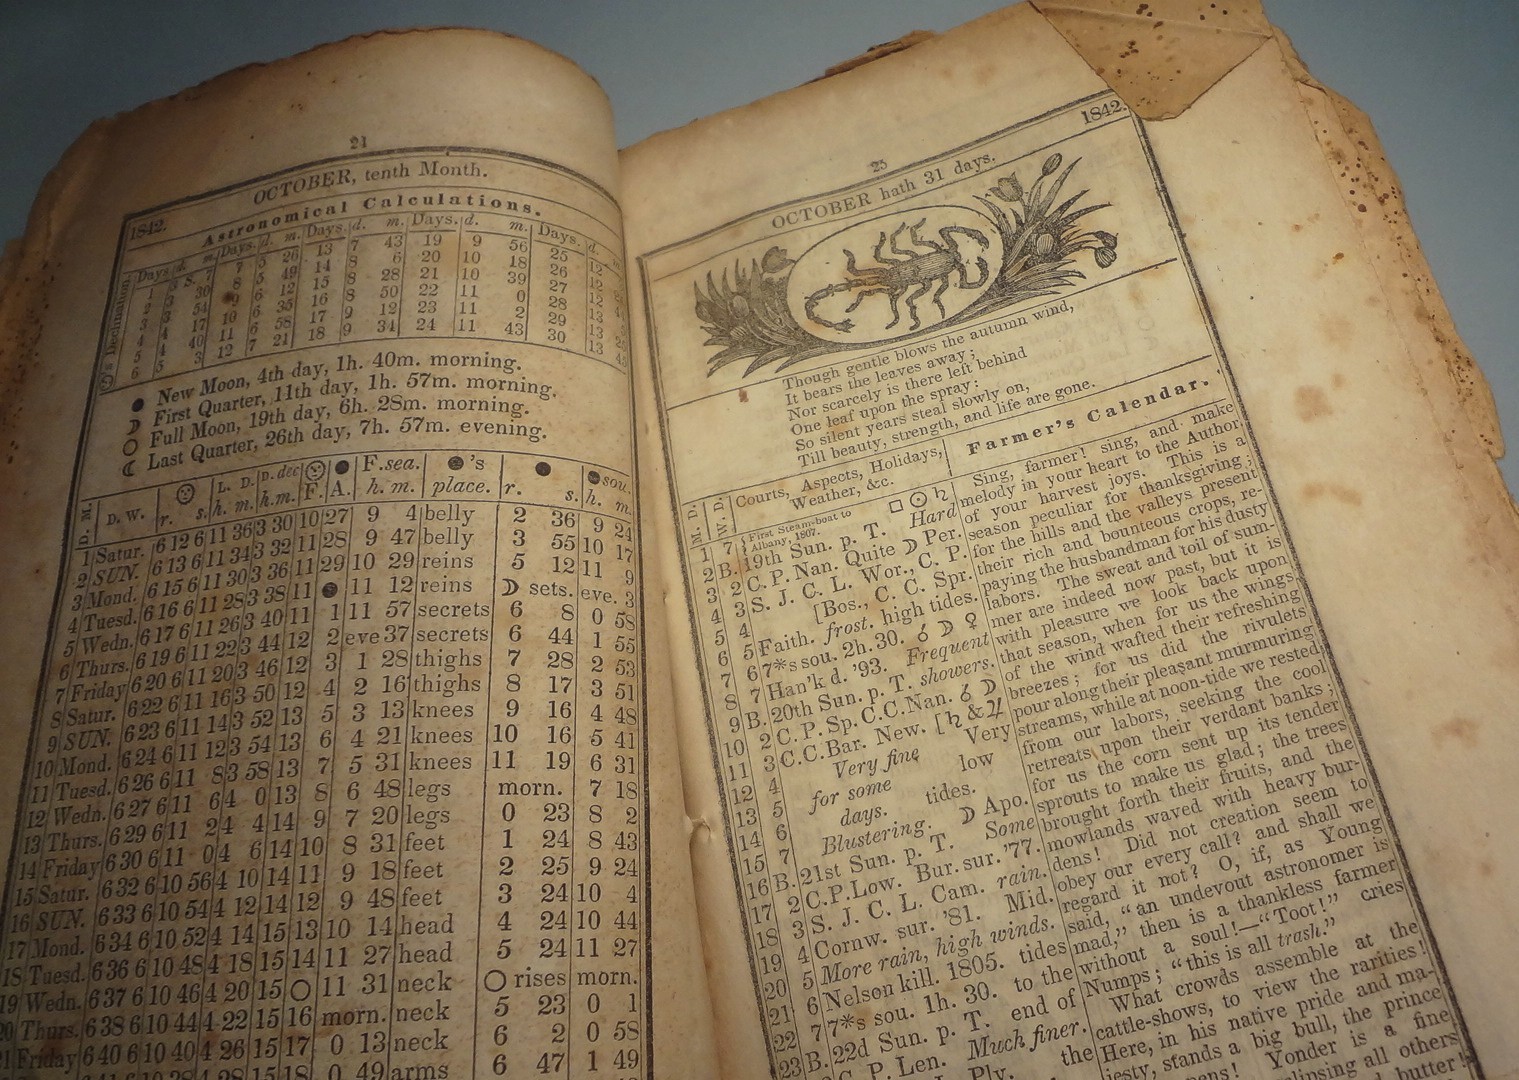 24
1842. OCTOBER, tenth Month.
Astronomical Calculations.
Days. d. m. Days. d. m. Days. d. m. Days. d. m. Days. d.
13 7 43 19 9 56 25 12
14 8 6 20 10 18 26 12
15 8 28 21 10 39 27 12
16 8 50 22 11 0 28 13
17 9 12 23 11 2 29 13
18 9 34 24 11 43 30 13
● New Moon, 4th day, 1h. 40m. morning.
☽ First Quarter, 11th day, 1h. 57m. morning.
○ Full Moon, 19th day, 6h. 28m. morning.
☾ Last Quarter, 26th day, 7h. 57m. evening.
D. M. D. W. r. s. L. D. h. m. D. dec h. m. F. A. F. sea. h. m. ●'s place. r. s. sou. h. m.
1 Satur. 6 12 6 11 36 3 30 10 27 9 4 belly 2 36 9 24
2 SUN. 6 13 6 11 34 3 32 11 28 9 47 belly 3 55 10 17
3 Mond. 6 15 6 11 30 3 36 11 29 10 29 reins 5 12 11 9
4 Tuesd. 6 16 6 11 28 3 38 11 ● 11 12 reins ☽ sets. eve. 3
5 Wedn. 6 17 6 11 26 3 40 11 1 11 57 secrets 6 8 0 58
6 Thurs. 6 19 6 11 22 3 44 12 2 eve 37 secrets 6 44 1 55
7 Friday 6 20 6 11 20 3 46 12 3 1 28 thighs 7 28 2 53
8 Satur. 6 22 6 11 16 3 50 12 4 2 16 thighs 8 17 3 51
9 SUN. 6 23 6 11 14 3 52 13 5 3 13 knees 9 16 4 48
10 Mond. 6 24 6 11 12 3 54 13 6 4 21 knees 10 16 5 41
11 Tuesd. 6 26 6 11 8 3 58 13 7 5 31 knees 11 19 6 31
12 Wedn. 6 27 6 11 6 4 0 13 8 6 48 legs morn. 7 18
13 Thurs. 6 29 6 11 2 4 4 14 9 7 20 legs 0 23 8 2
14 Friday 6 30 6 11 0 4 6 14 10 8 31 feet 1 24 8 43
15 Satur. 6 32 6 10 56 4 10 14 11 9 18 feet 2 25 9 24
16 SUN. 6 33 6 10 54 4 12 14 12 9 48 feet 3 24 10 4
17 Mond. 6 34 6 10 52 4 14 15 13 10 14 head 4 24 10 44
18 Tuesd. 6 36 6 10 48 4 18 15 14 11 27 head 5 24 11 27
19 Wedn. 6 37 6 10 46 4 20 15 ○ 11 31 neck ○ rises morn.
20 Thurs. 6 38 6 10 44 4 22 15 16 morn. neck 5 23 0 1
21 Friday 6 40 6 10 40 4 26 15 17 0 13 neck 6 2 0 58
0 49 arms 6 47 1 49
25
OCTOBER hath 31 days. 1842.
Though gentle blows the autumn wind,
It bears the leaves away;
Nor scarcely is there left behind
One leaf upon the spray:
So silent years steal slowly on,
Till beauty, strength, and life are gone.
M. D. W. D. Courts, Aspects, Holidays,
Weather, &c.
1 7 First Steam-boat to □ ⊙ ♄
Albany, 1807. Hard
2 B. 19th Sun. p. T.
3 2 C. P. Nan. Quite ☽ Per.
4 3 S. J. C. L. Wor., C. P.
5 4 [Bos., C. C. Spr.
6 5 Faith. frost. high tides.
7 6 7*s sou. 2h. 30. ☌ ☽ ♀
8 7 Han'k d. '93. Frequent
9 B. 20th Sun. p. T. showers.
10 2 C. P. Sp. C.C. Nan. ☌ ☽
11 3 C.C. Bar. New. [♄ & ♃
12 4 Very fine Very
13 5 for some low
14 6 days. tides.
15 7 Blustering. ☽ Apo.
16 B. 21st Sun. p. T. Some
17 2 C.P. Low. Bur. sur. '77.
18 3 S. J. C. L. Cam. rain.
19 4 Cornw. sur. '81. Mid.
20 5 More rain, high winds.
21 6 Nelson kill. 1805. tides
22 7 7*s sou. 1h. 30. to the
23 B. 22d Sun. p. T. end of
C. P. Len. Much finer.
Ply. the
Farmer's Calendar.
Sing, farmer! sing, and make
melody in your heart to the Author
of your harvest joys. This is a
season peculiar for thanksgiving;
for the hills and the valleys present
their rich and bounteous crops, re-
paying the husbandman for his dusty
labors. The sweat and toil of sum-
mer are indeed now past, but it is
with pleasure we look back upon
that season, when for us the wings
of the wind wafted their refreshing
breezes; for us did the rivulets
pour along their pleasant murmuring
streams, while at noon-tide we rested
from our labors, seeking the cool
retreats upon their verdant banks;
for us the corn sent up its tender
sprouts to make us glad; the trees
brought forth their fruits, and the
mowlands waved with heavy bur-
dens! Did not creation seem to
obey our every call? and shall we
regard it not? O, if, as Young
said, "an undevout astronomer is
mad," then is a thankless farmer
without a soul!—"Toot!" cries
Numps; "this is all trash."
What crowds assemble at the
cattle-shows, to view the rarities!
Here, in his native pride and ma-
jesty, stands a big bull, the prince
Yonder is a fine
all others
butter!